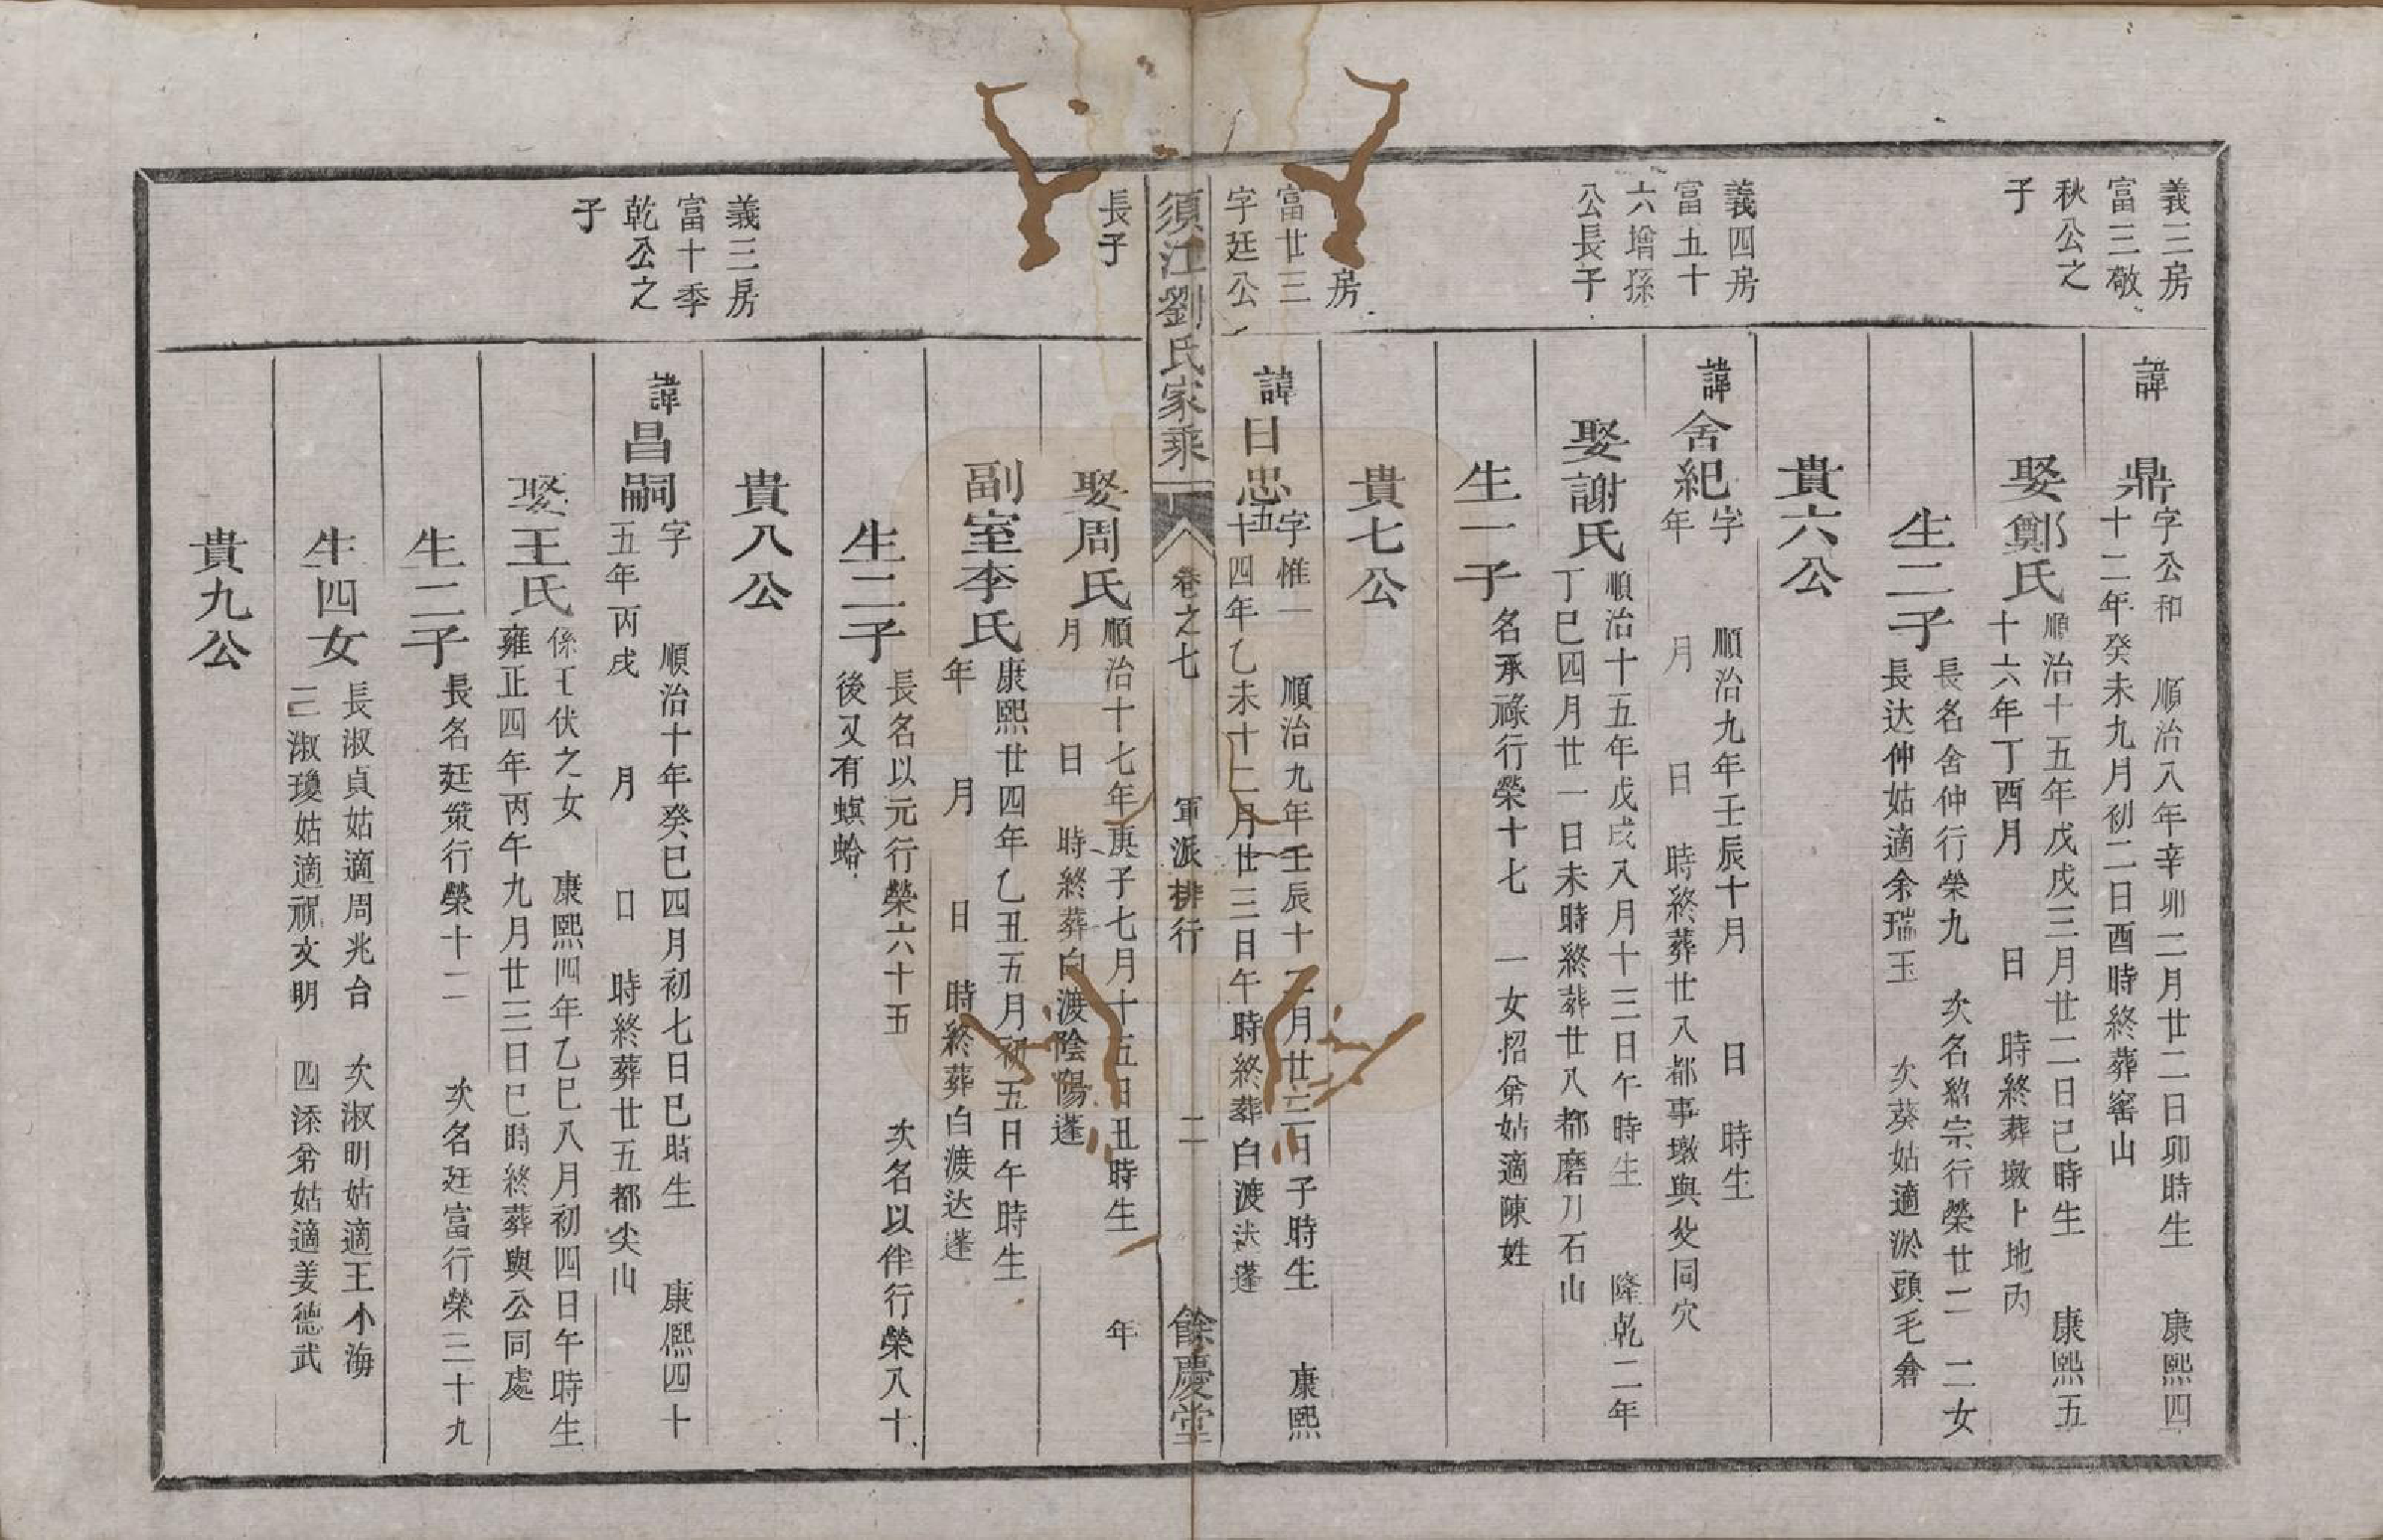 義三房
富三敬
秋公之
子
諱鼎
字公和 順治八年辛卯二月廿二日卯時生 康熙四
十二年癸未九月初二日酉時終葬窰山
娶鄭氏
順治十五年戊戌三月廿二日巳時生 康熙五
十六年丁酉月 日 時終葬墩卜地丙
生二子
長名舍仲行榮九 次名紹宗行榮廿二 二女
長达仲姑適余瑞玉 次葵姑適淤頭毛倉
貴六公
義四房
富五十
六增孫
公長子
諱舍紀
字 順治九年壬辰十月 日 時生
年 月 日 時終葬廿八都事墩與父同穴
娶謝氏
順治十五年戊戌八月十三日午時生 隆乾二年
丁巳四月廿一日未時終葬廿八都磨刀石山
生一子
名承祿行榮十七 一女招弟姑適陳姓
貴七公
房
富廿三
字廷公
長子
諱日忠
字惟一 順治九年壬辰十二月廿三日子時生 康熙
五十四年乙未十二月廿三日午時終葬白渡达蓬
須江劉氏家乘
卷之七 軍派排行 二 餘慶堂
娶周氏
順治十七年庚子七月十五日丑時生 年
月 日 時終葬白渡陰陽蓬
副室李氏
康熙廿四年乙丑五月初五日午時生
年 月 日 時終葬白渡达蓬
生二子
長名以元行榮六十五 次名以伴行榮八十
後又有螟蛉
貴八公
義三房
富十季
乾公之
子
諱昌嗣
字 順治十年癸巳四月初七日巳時生 康熙四十
五年丙戌 月 日 時終葬廿五都尖山
娶王氏
係王伏之女 康熙四年乙巳八月初四日午時生
雍正四年丙午九月廿三日巳時終葬與公同處
生二子
長名廷策行榮十二 次名廷富行榮三十九
生四女
長淑貞姑適周兆台 次淑明姑適王小海
三淑瓊姑適祝文明 四添弟姑適姜德武
貴九公